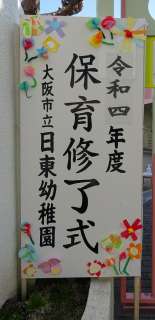 令和四年度
保育修了式
大阪市立日東幼稚園